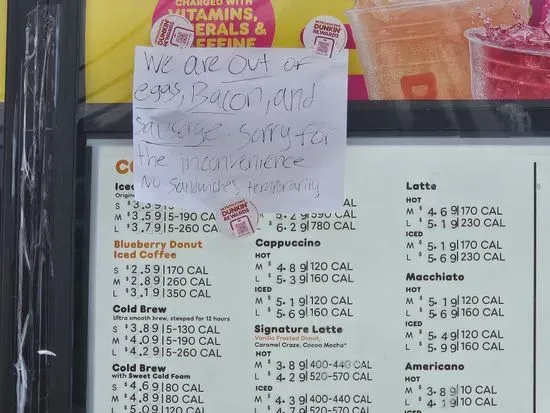 CHARGED WITH
VITAMINS,
MINERALS &
CAFFEINE
INTRODUCING
DUNKIN'
REWARDS
INTRODUCING
DUNKIN'
REWARDS
We are out of
eggs, Bacon, and
Sausage. Sorry for
the inconvenience
No Sandwiches temporarily
INTRODUCING
DUNKIN'
REWARDS
Iced
S $3.39
M $3.59|5-190 CAL
L $3.79|5-260 CAL
Blueberry Donut
Iced Coffee
S $2.59|170 CAL
M $2.89|260 CAL
L $3.19|350 CAL
Cold Brew
Ultra smooth brew, steeped for 12 hours
S $3.89|5-130 CAL
M $4.09|5-190 CAL
L $4.29|5-260 CAL
Cold Brew
with Sweet Cold Foam
S $4.69|80 CAL
M $4.89|80 CAL
L $5.09|120 CAL
CAL
M $5.29|590 CAL
L $6.29|780 CAL
Cappuccino
HOT
M $4.89|120 CAL
L $5.39|160 CAL
ICED
M $5.19|120 CAL
L $5.69|160 CAL
Signature Latte
Vanilla Frosted Donut,
Caramel Craze, Cocoa Mocha*
HOT
M $3.89|400-440 CAL
L $4.29|520-570 CAL
ICED
M $4.39|400-440 CAL
L $4.79|520-570 CAL
Latte
HOT
M $4.69|170 CAL
L $5.19|230 CAL
ICED
M $5.19|170 CAL
L $5.69|230 CAL
Macchiato
HOT
M $4.99|120 CAL
L $5.49|160 CAL
ICED
M $5.49|120 CAL
L $5.99|160 CAL
Americano
HOT
M $3.89|10 CAL
L $4.19|10 CAL
ICED